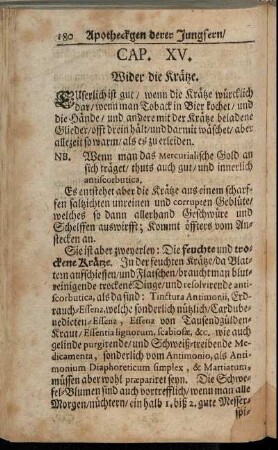 180 Apotheckgen derer Jungfern/
CAP. XV.
Wider die Krätze.
Eusserlich ist gut / wenn die Krätze würcklich
dar / wenn man Toback in Bier kochet / und
die Hände / und andere mit der Krätze beladene
Glieder / offt drein hält / und darmit wäschet / aber
allezeit so warm / als es zu erleiden.
NB. Wenn man das Mercurialische Gold an
sich träget / thuts auch gut / und innerlich
antiscorbutica.
Es entstehet aber die Krätze aus einem scharf-
fen saltzichten unreinen und corrupten Geblüte/
welches so dann allerhand Geschwüre und
Schelffen auswirfft; Kommt öffters vom An-
stecken an.
Sie ist aber zweyerley: Die feuchte und tro-
ckene Krätze. In der feuchten Krätze / da Blat-
tern auffschiessen / und Flatschen / braucht man blut-
reinigende trockene Dinge / und resolvirende anti-
scorbutica, als da sind: Tinctura Antimonii, Erd-
rauch / Essenz, welche sonderlich nützlich / Cardube-
nedicten / Essenz, Essenz von Tausendgülden-
Kraut / Essentia lignorum, scabiosæ, &c. wie auch
gelinde purgirende / und Schweiß-treibende Me-
dicamenta, sonderlich vom Antimonio, als Anti-
monium Diaphoreticum simplex, & Martiatum,
müssen aber wohl præpariret seyn. Die Schwe-
fel-Blumen sind auch vortrefflich / wenn man alle
Morgen / nüchtern / ein halb 1. biß 2. gute Messer-
spi-